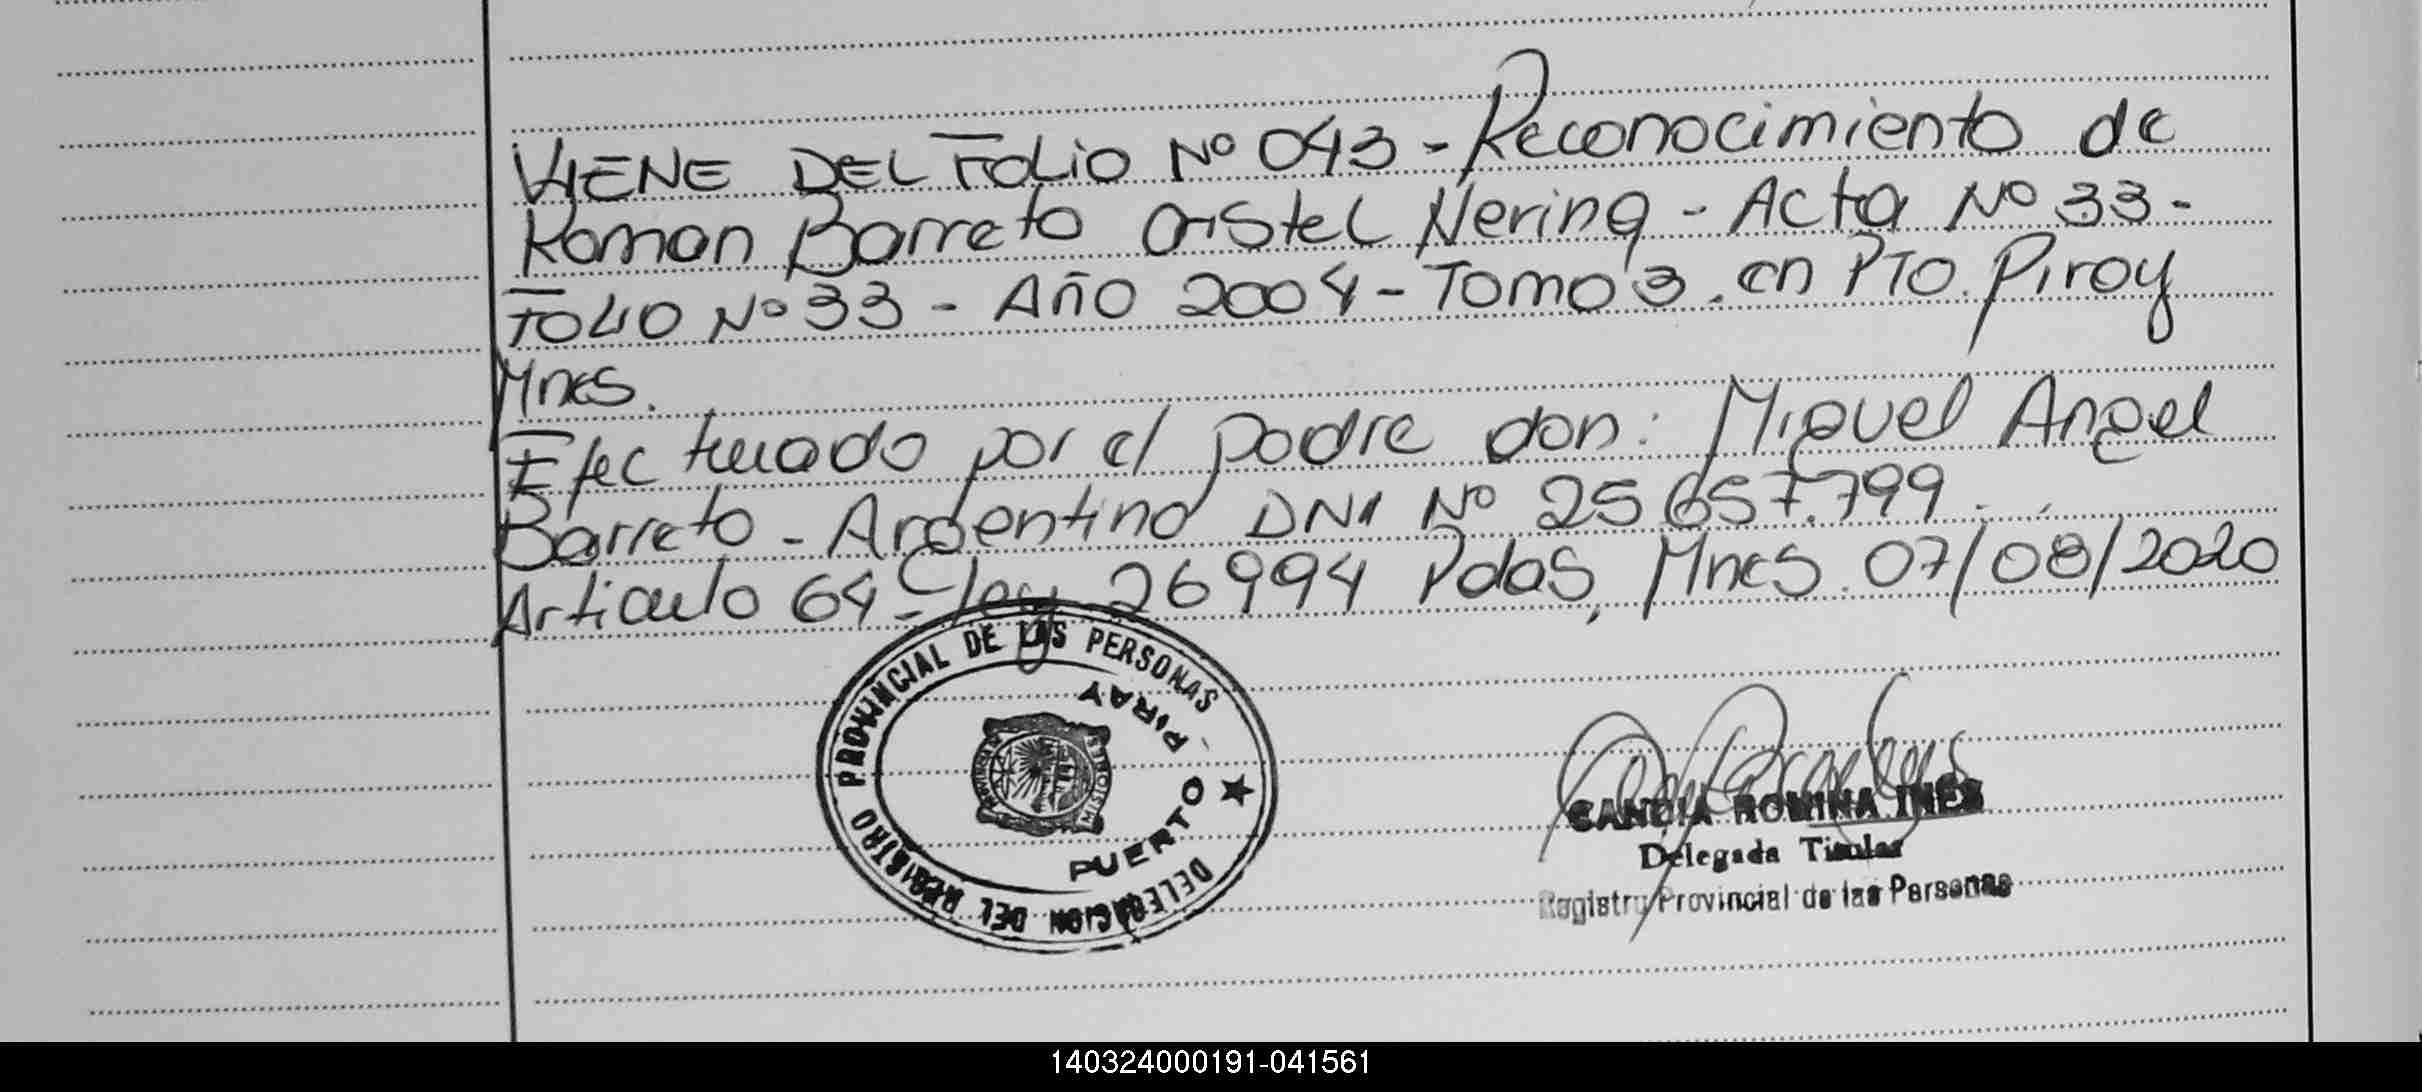 VIENE DEL FOLIO Nº 043 - Reconocimiento de
Roman Barreto Cristel Nerina - Acta Nº 33 -
FOLIO Nº 33 - Año 2004 - Tomo 3. en PTO. Piray
Mnes.
Efectuado por el padre don: Miguel Angel
Barreto - Argentino DNI Nº 25657.799.
Articulo 64 - ley 26994 Pdas, Mnes. 07/08/2020
DELEGACION DEL REGISTRO PROVINCIAL DE LAS PERSONAS
PUERTO PIRAY
MISIONES
CANDIA ROMINA INES
Delegada Titular
Registro Provincial de las Personas
140324000191-041561